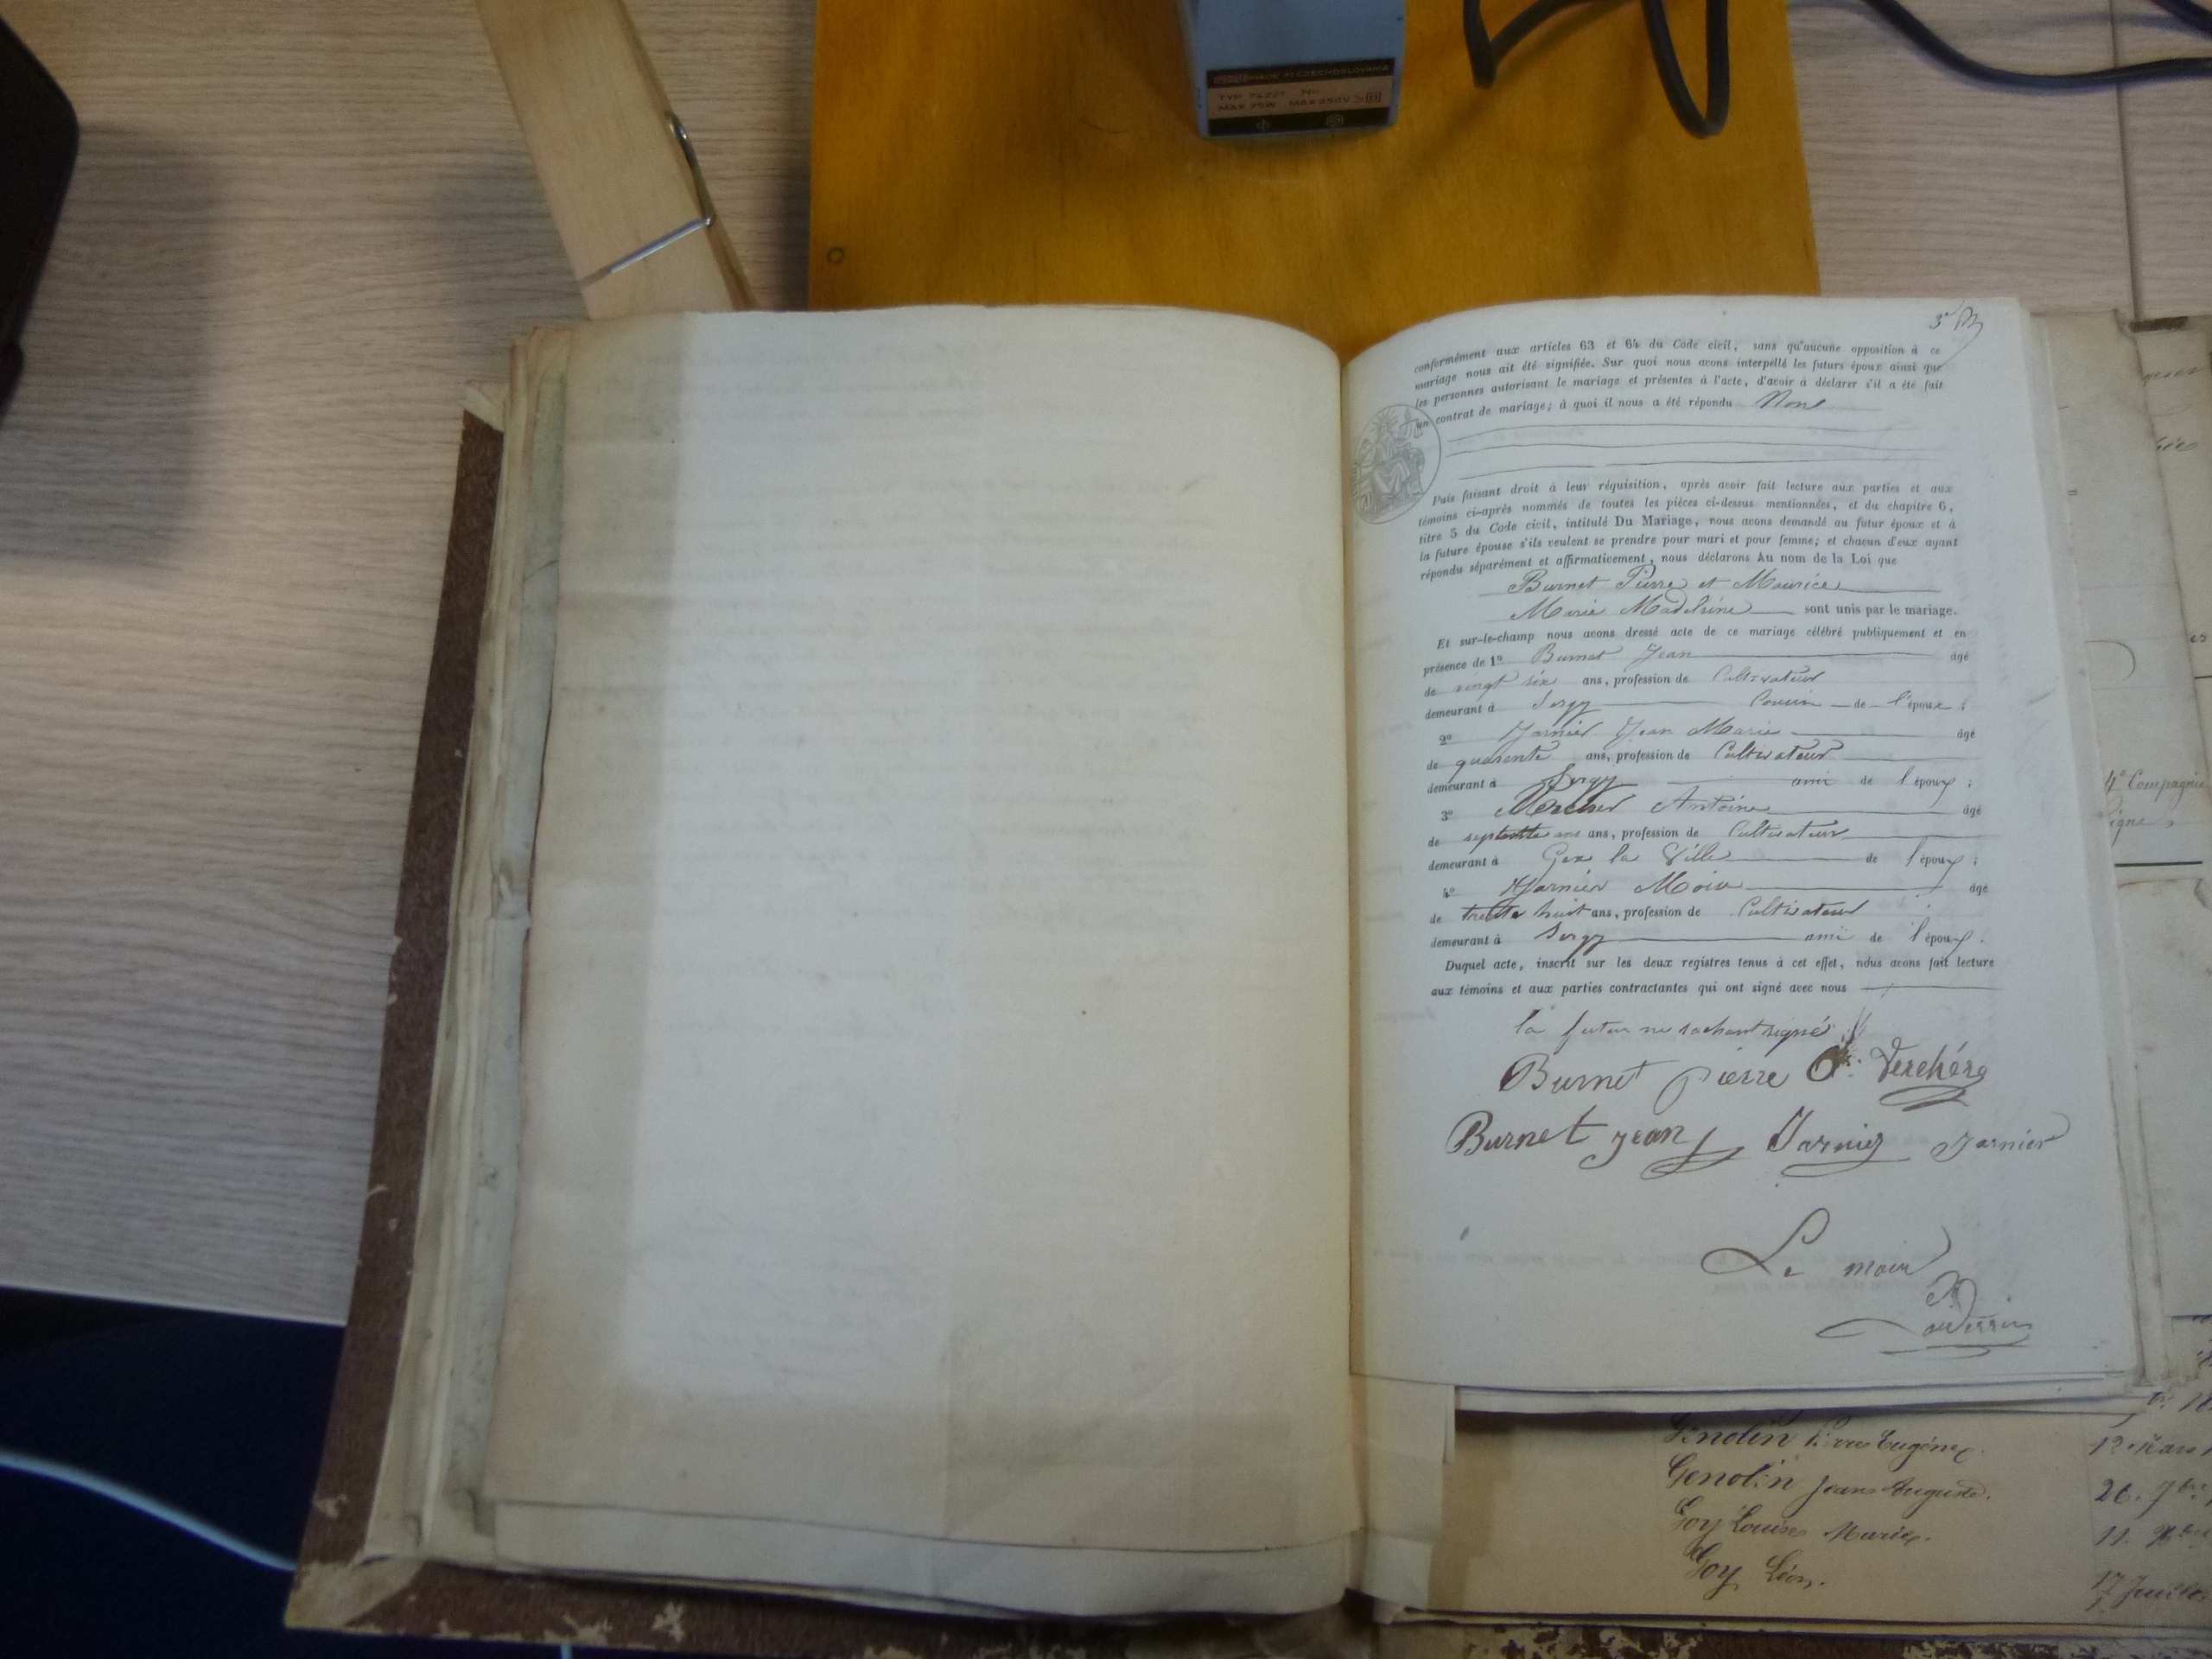 MADE IN CZECHOSLOVAKIA
MAX 75W MAX 250V
conformément aux articles 63 et 64 du Code civil, sans qu'aucune opposition à ce
mariage nous ait été signifiée. Sur quoi nous avons interpellé les futurs époux ainsi que
les personnes autorisant le mariage et présentes à l'acte, d'avoir à déclarer s'il a été fait
un contrat de mariage; à quoi il nous a été répondu Non
Puis faisant droit à leur réquisition, après avoir fait lecture aux parties et aux
témoins ci-après nommés de toutes les pièces ci-dessus mentionnées, et du chapitre 6,
titre 5 du Code civil, intitulé Du Mariage, nous avons demandé au futur époux et à
la future épouse s'ils veulent se prendre pour mari et pour femme; et chacun d'eux ayant
répondu séparément et affirmativement, nous déclarons Au nom de la Loi que
Burnet Pierre et Maurice
Marie Madeleine sont unis par le mariage.
Et sur-le-champ nous avons dressé acte de ce mariage célébré publiquement et en
présence de 1º Burnet Jean âgé
de vingt six ans, profession de Cultivateur
demeurant à Sergy Cousin de l'époux;
2º Jarnier Jean Marie âgé
de quarante ans, profession de Cultivateur
demeurant à Sergy ami de l'époux;
3º Antoine âgé
de ans, profession de Cultivateur
demeurant à Gex la Ville de l'époux;
4º Jarnier âgé
de trente huit ans, profession de Cultivateur
demeurant à Sergy ami de l'époux.
Duquel acte, inscrit sur les deux registres tenus à cet effet, nous avons fait lecture
aux témoins et aux parties contractantes qui ont signé avec nous
la futur ne sachant signé
Burnet Pierre Verchére
Burnet Jean Jarnier Jarnier
Le maire
4e Compagnie
Ligne
Genolin Eugène
Genolin Jean Auguste.
Goy Louise Marie.
Goy Léon.
12 Mars
26. 7bre
11.
17 Juillet